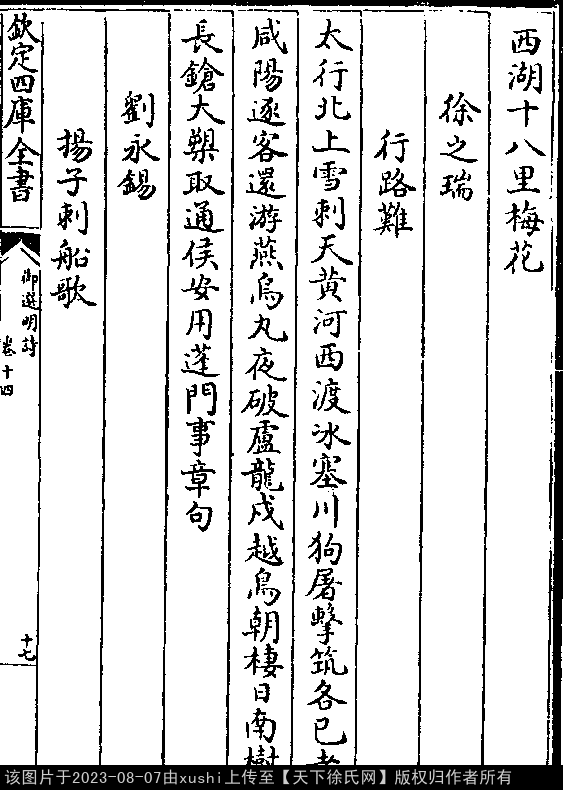 西湖十八里梅花
徐之瑞
行路難
太行北上雪刺天黄河西渡冰塞川狗屠擊筑各已老
咸陽逐客還游燕烏丸夜破盧龍戍越鳥朝棲日南樹
長鎗大槊取通侯安用蓬門事章句
劉永錫
揚子刺船歌
欽定四庫全書
御選明詩
卷十四
十七
该图片于2023-08-07由xushi上传至【天下徐氏网】版权归作者所有